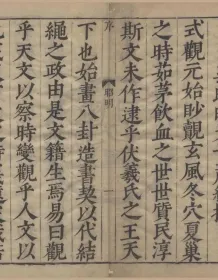 式觀元始眇覿玄風冬穴夏巢
之時茹茅飲血之世世質民淳
斯文未作逮乎伏羲氏之王天
序
一
下也始畫八卦造書契以代結
繩之政由是文籍生焉易曰觀
乎天文以察時變觀乎人文以